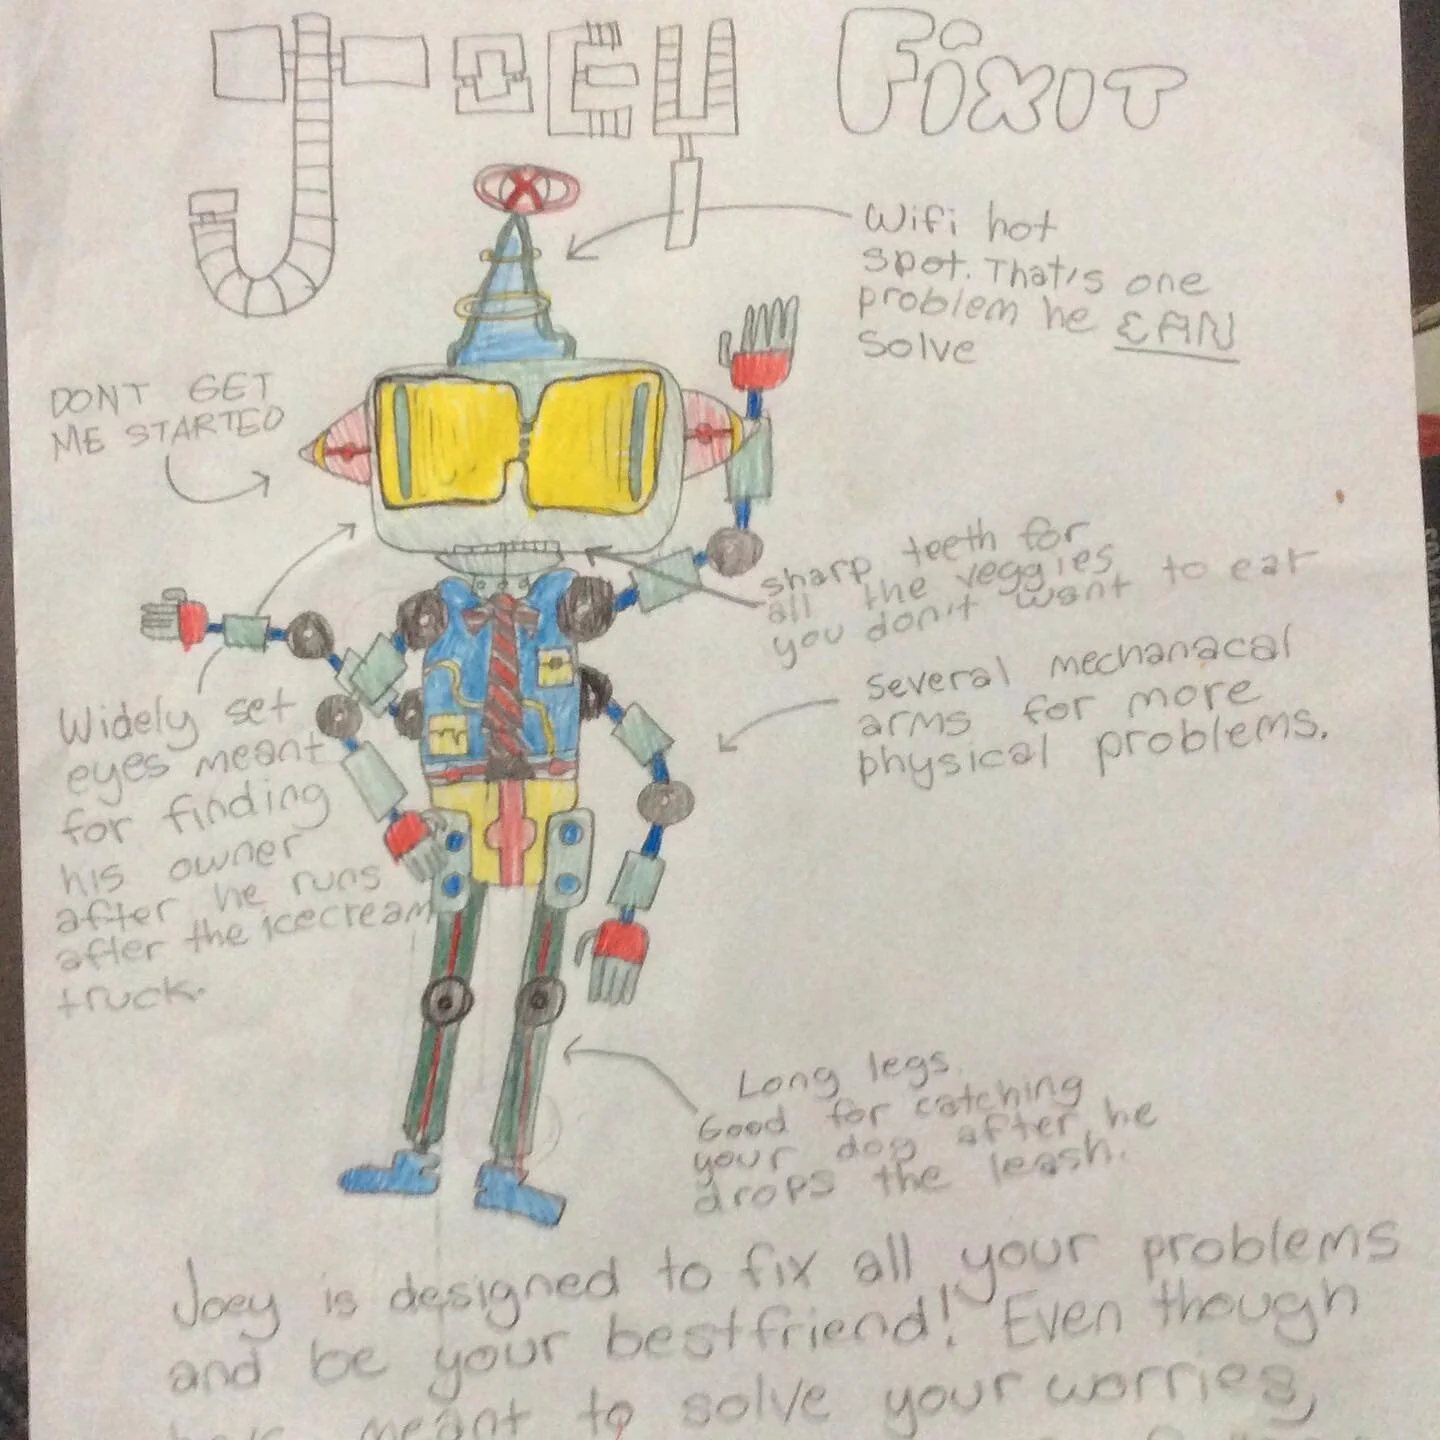 Joey Fixit
Wifi hot
spot. That's one
problem he CAN
solve
DONT GET
ME STARTED
sharp teeth for
all the veggies
you don't want to eat
several mechanacal
arms for more
physical problems.
Widely set
eyes meant
for finding
his owner
after he runs
after the icecream
truck.
Long legs.
Good for catching
your dog after he
drops the leash.
Joey is designed to fix all your problems
and be your bestfriend! Even though
he's meant to solve your worries,